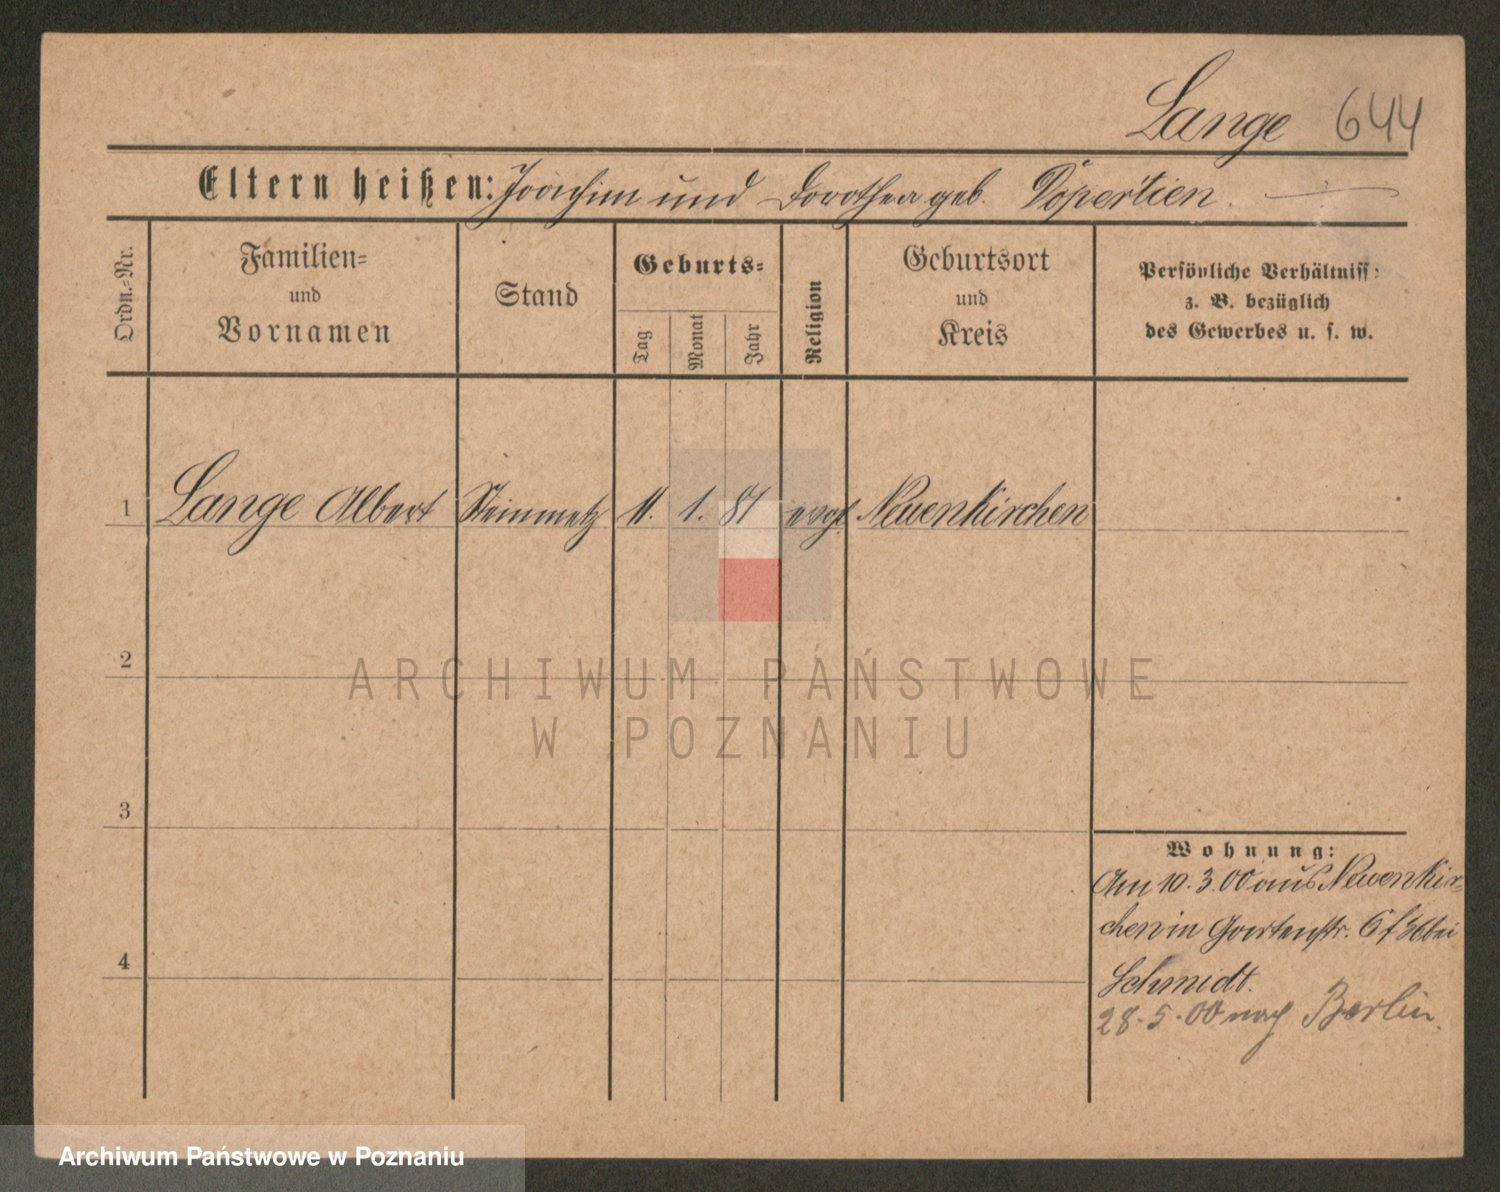 Lange 644
Eltern heißen: Joachim und Dorothea geb. Pöpertien.
Ordn.-Nr.
Familien-
und
Vornamen
Stand
Geburts-
Tag
Monat
Jahr
Religion
Geburtsort
und
Kreis
Persönliche Verhältniss:
z. B. bezüglich
des Gewerbes u. s. w.
1 Lange Albert Steinmetz 11. 1. 81 evgl. Neuenkirchen
2
ARCHIWUM PAŃSTWOWE
W POZNANIU
3
Wohnung:
Am 10.3.00 aus Neuenkir-
chen in Gartenstr. 6 bei
4
Schmidt.
28.5.00 nach Berlin.
Archiwum Państwowe w Poznaniu